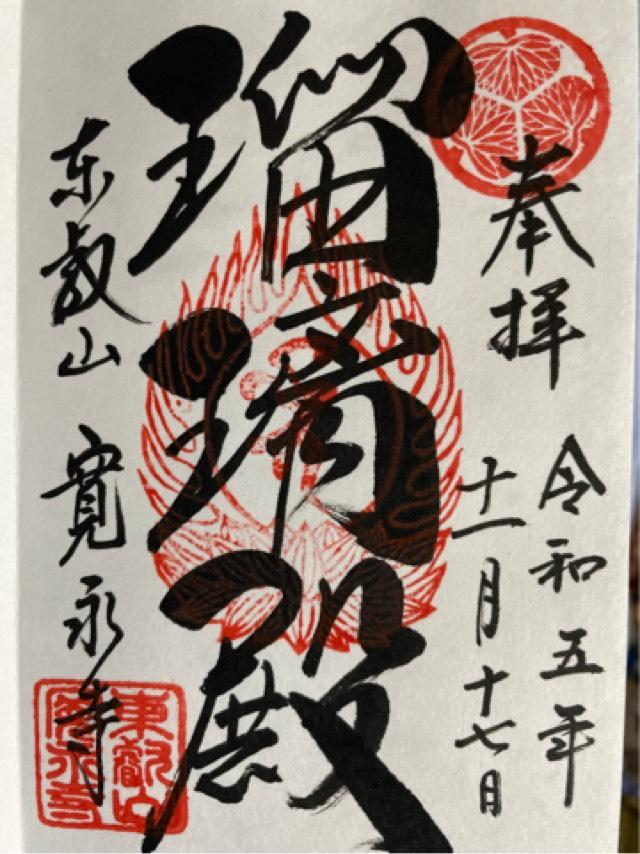 奉拝
令和五年
十一月十七日
瑠璃殿
东叡山 寛永寺
東叡山
寛永寺